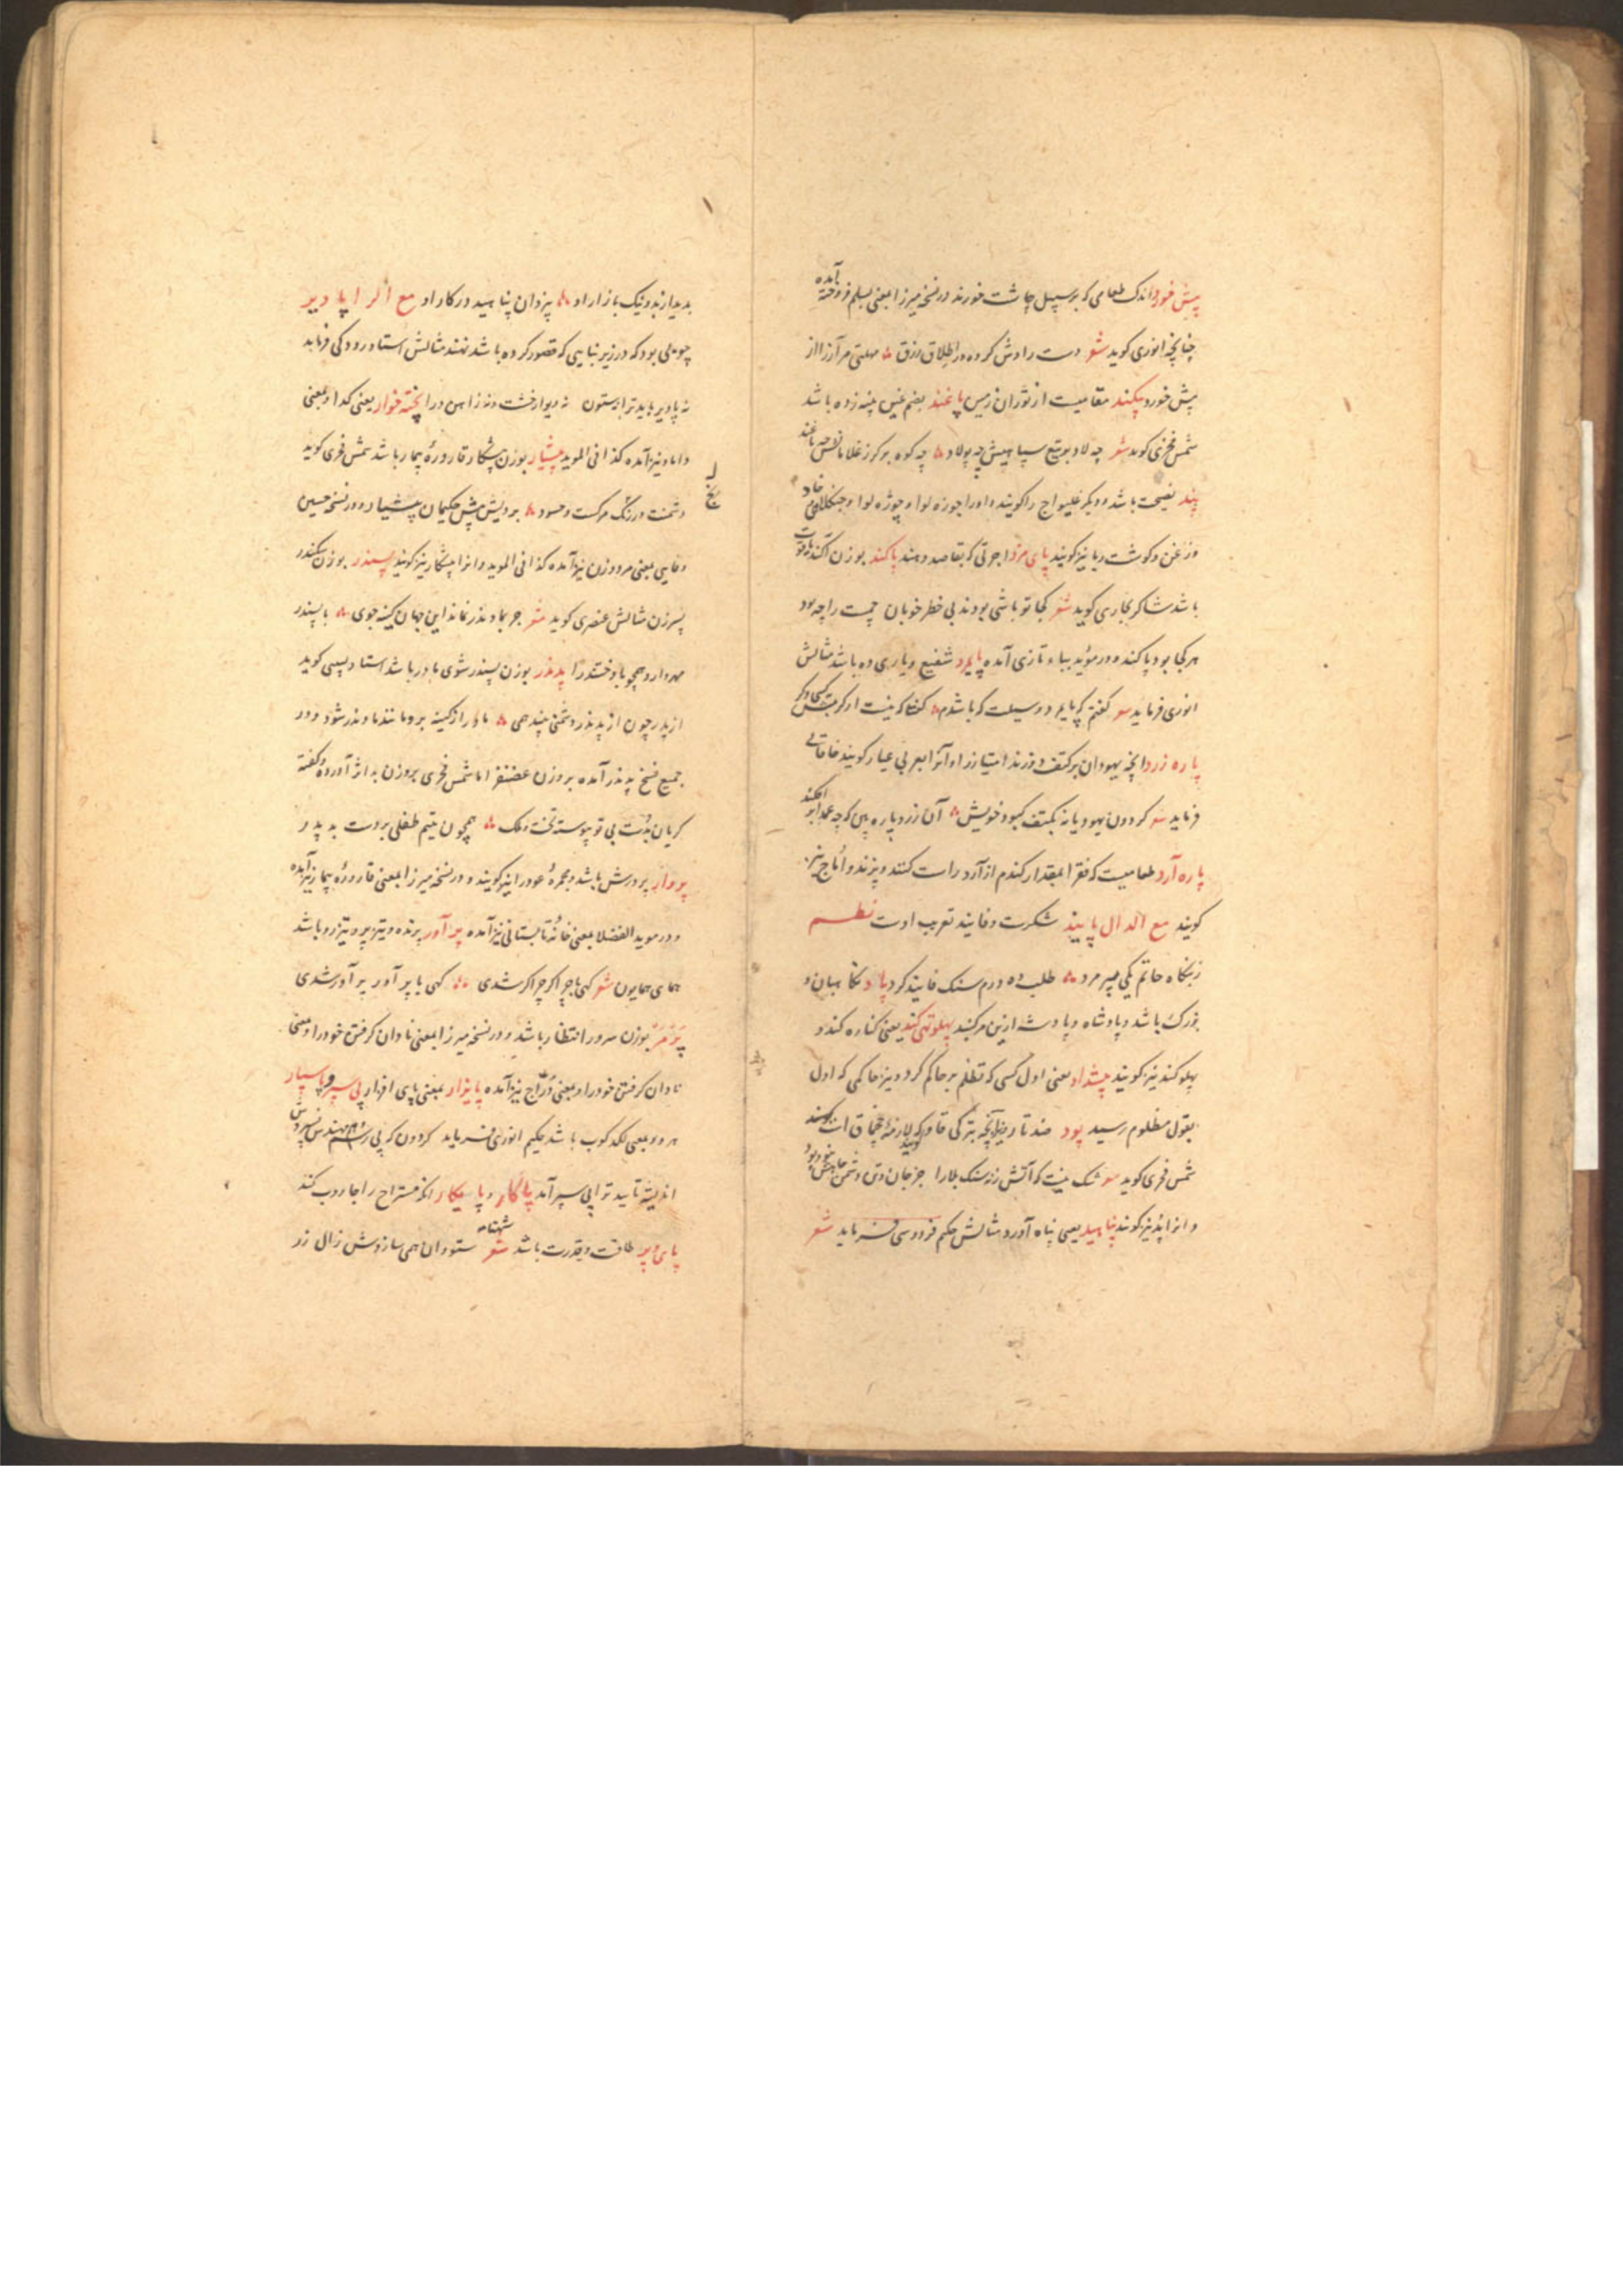 پیش خورد اندک طعامی که بر سبیل چاشت خورند و در نسخه میرزا بمعنی بسلم فروخته آمده
چنانچه انوری کوید شعر دست رادش کرده در اطلاق رزق مهلتی مر آز را از
پیش خورد پیکند مقامیست از توران زمین پاغند بضم غین پنبه زده باشد
شمس فخری کوید شعر چه لاد بر تیغ سپاهیش چه پولاد چه کوه بر کرز غلامانش چه پاغند
پند نصیحت باشد و دیکر غلیواج را کویند و او را جوزه لوا و چوژه لوا و خاد
و زغن و کوشت ربا نیز کویند پای مزد اجرتی که بقاصد دهند پاکند بوزن آکند یاقوت
باشد شاکر بخاری کوید شعر کجا تو باشی بودند بی خطر خوبان جمست را چه بود
هر کجا بود پاکند و در مؤید بباء تازی آمده پایمرد شفیع و یاری ده باشد مثالش
انوری فرماید شعر کفتم که پایمرد و وسیلت که باشدم کفتا که نیست
پاره زرد آنچه یهودان بر کتف دوزند امتیاز را و آنرا بعربی غیار کویند خاقانی
فرماید شعر کردون یهودیانه بکتف کبود خویش آن زرد پاره بین که چه عمدا بر افکند
پاره آرد طعامیست که فقرا بمقدار کندم از آرد راست کنند و پزند و اماج نیز
کویند مع الدال پانیذ شکرست و فانیذ تعریب اوست نظم
ز بنکاه حاتم یکی پیر مرد طلب ده درم سنک فانیذ کرد پاد نکاهبان و
بزرک باشد و پادشاه و پادشه ازین مرکبند پهلو تهی کند یعنی کناره کند و
پهلو کند نیز کویند پیشداد یعنی اول کسی که تظلم بر حاکم کرد و نیز حاکمی که اول
بقول مظلوم رسید پود ضد تار و نیز آنچه بترکی قاو کویند که لازمهٔ چقماق است
شمس فخری کوید شعر شک نیست که آتش زنه سنک بلا را جز جان و تن دشمن جاهش نبود پود
و انرا پد نیز کویند پناهید یعنی پناه آورد مثالش حکیم فردوسی فرماید شعر
بدیدار بد و نیک بازار او بیزدان پناهید در کار او مع الرا پادیر
چوبی بود که در زیر بنایی که قصور کرده باشد نهند مثالش استاد رودکی فرماید
نه پادیر باید ترا نه ستون نه دیوار خشت و نه ز آهن درا پخته خوار یعنی کدا و بمعنی
داماد نیز آمده کذا فی الموید پیشیار بوزن پیشکار قارورهٔ بیمار باشد شمس فخری کوید
دشمنت و حسود بر دیش پیش حکیمان پیشیار و در نسخه حسین
وفایی بمعنی مزدور نیز آمده کذا فی الموید و انرا پیشکار نیز کویند پسندر بوزن سکندر
پسر زن مثالش عنصری کوید شعر جز بمادندر نماند این جهان کینه جوی با پسندر
مهر دارد همچو با دختندرا پدندر بوزن پسندر شوی مادر باشد استاد لبیبی کوید
از پدر چون از پدندر دشمنی بیند همی مادر از کینه بر و مانند مادندر شود و در
جمیع نسخ پدندر آمده بر وزن غضنفر اما شمس فخری بر وزن آورده و کفته
کریان بدست بی تو پیوسته تخت و ملک همچون یتیم طفلی بر دست بدپدر
پروار پرورش باشد و مجمرهٔ عود را نیز کویند و در نسخه میرزا بمعنی قارورهٔ بیمار نیز آمده
و در موید الفضلا بمعنی خانهٔ تابستانی نیز آمده پرآور پرنده و تیز پر و تیز رو باشد
همای همایون شعر کهی با چراکر چراکر شدی کهی با پرآور پرآور شدی
پرمر بوزن سرور انتظار باشد و در نسخه میرزا بمعنی نادان کرفتن خود را و بمعنی
نادان کرفتن خود را و بمعنی دراج نیز آمده پایزار بمعنی پای افزار پی سپر و پی سپار
هر دو بمعنی لکدکوب باشد حکیم انوری فرماید کردون که پی
اندیشه تا بید ترا پی سپر آمد پاکار و پایکار انکه مستراح را جاروب کند
پای و پر طاقت و قدرت باشد شعر شهنامه ستودان همی سازدش زال زر